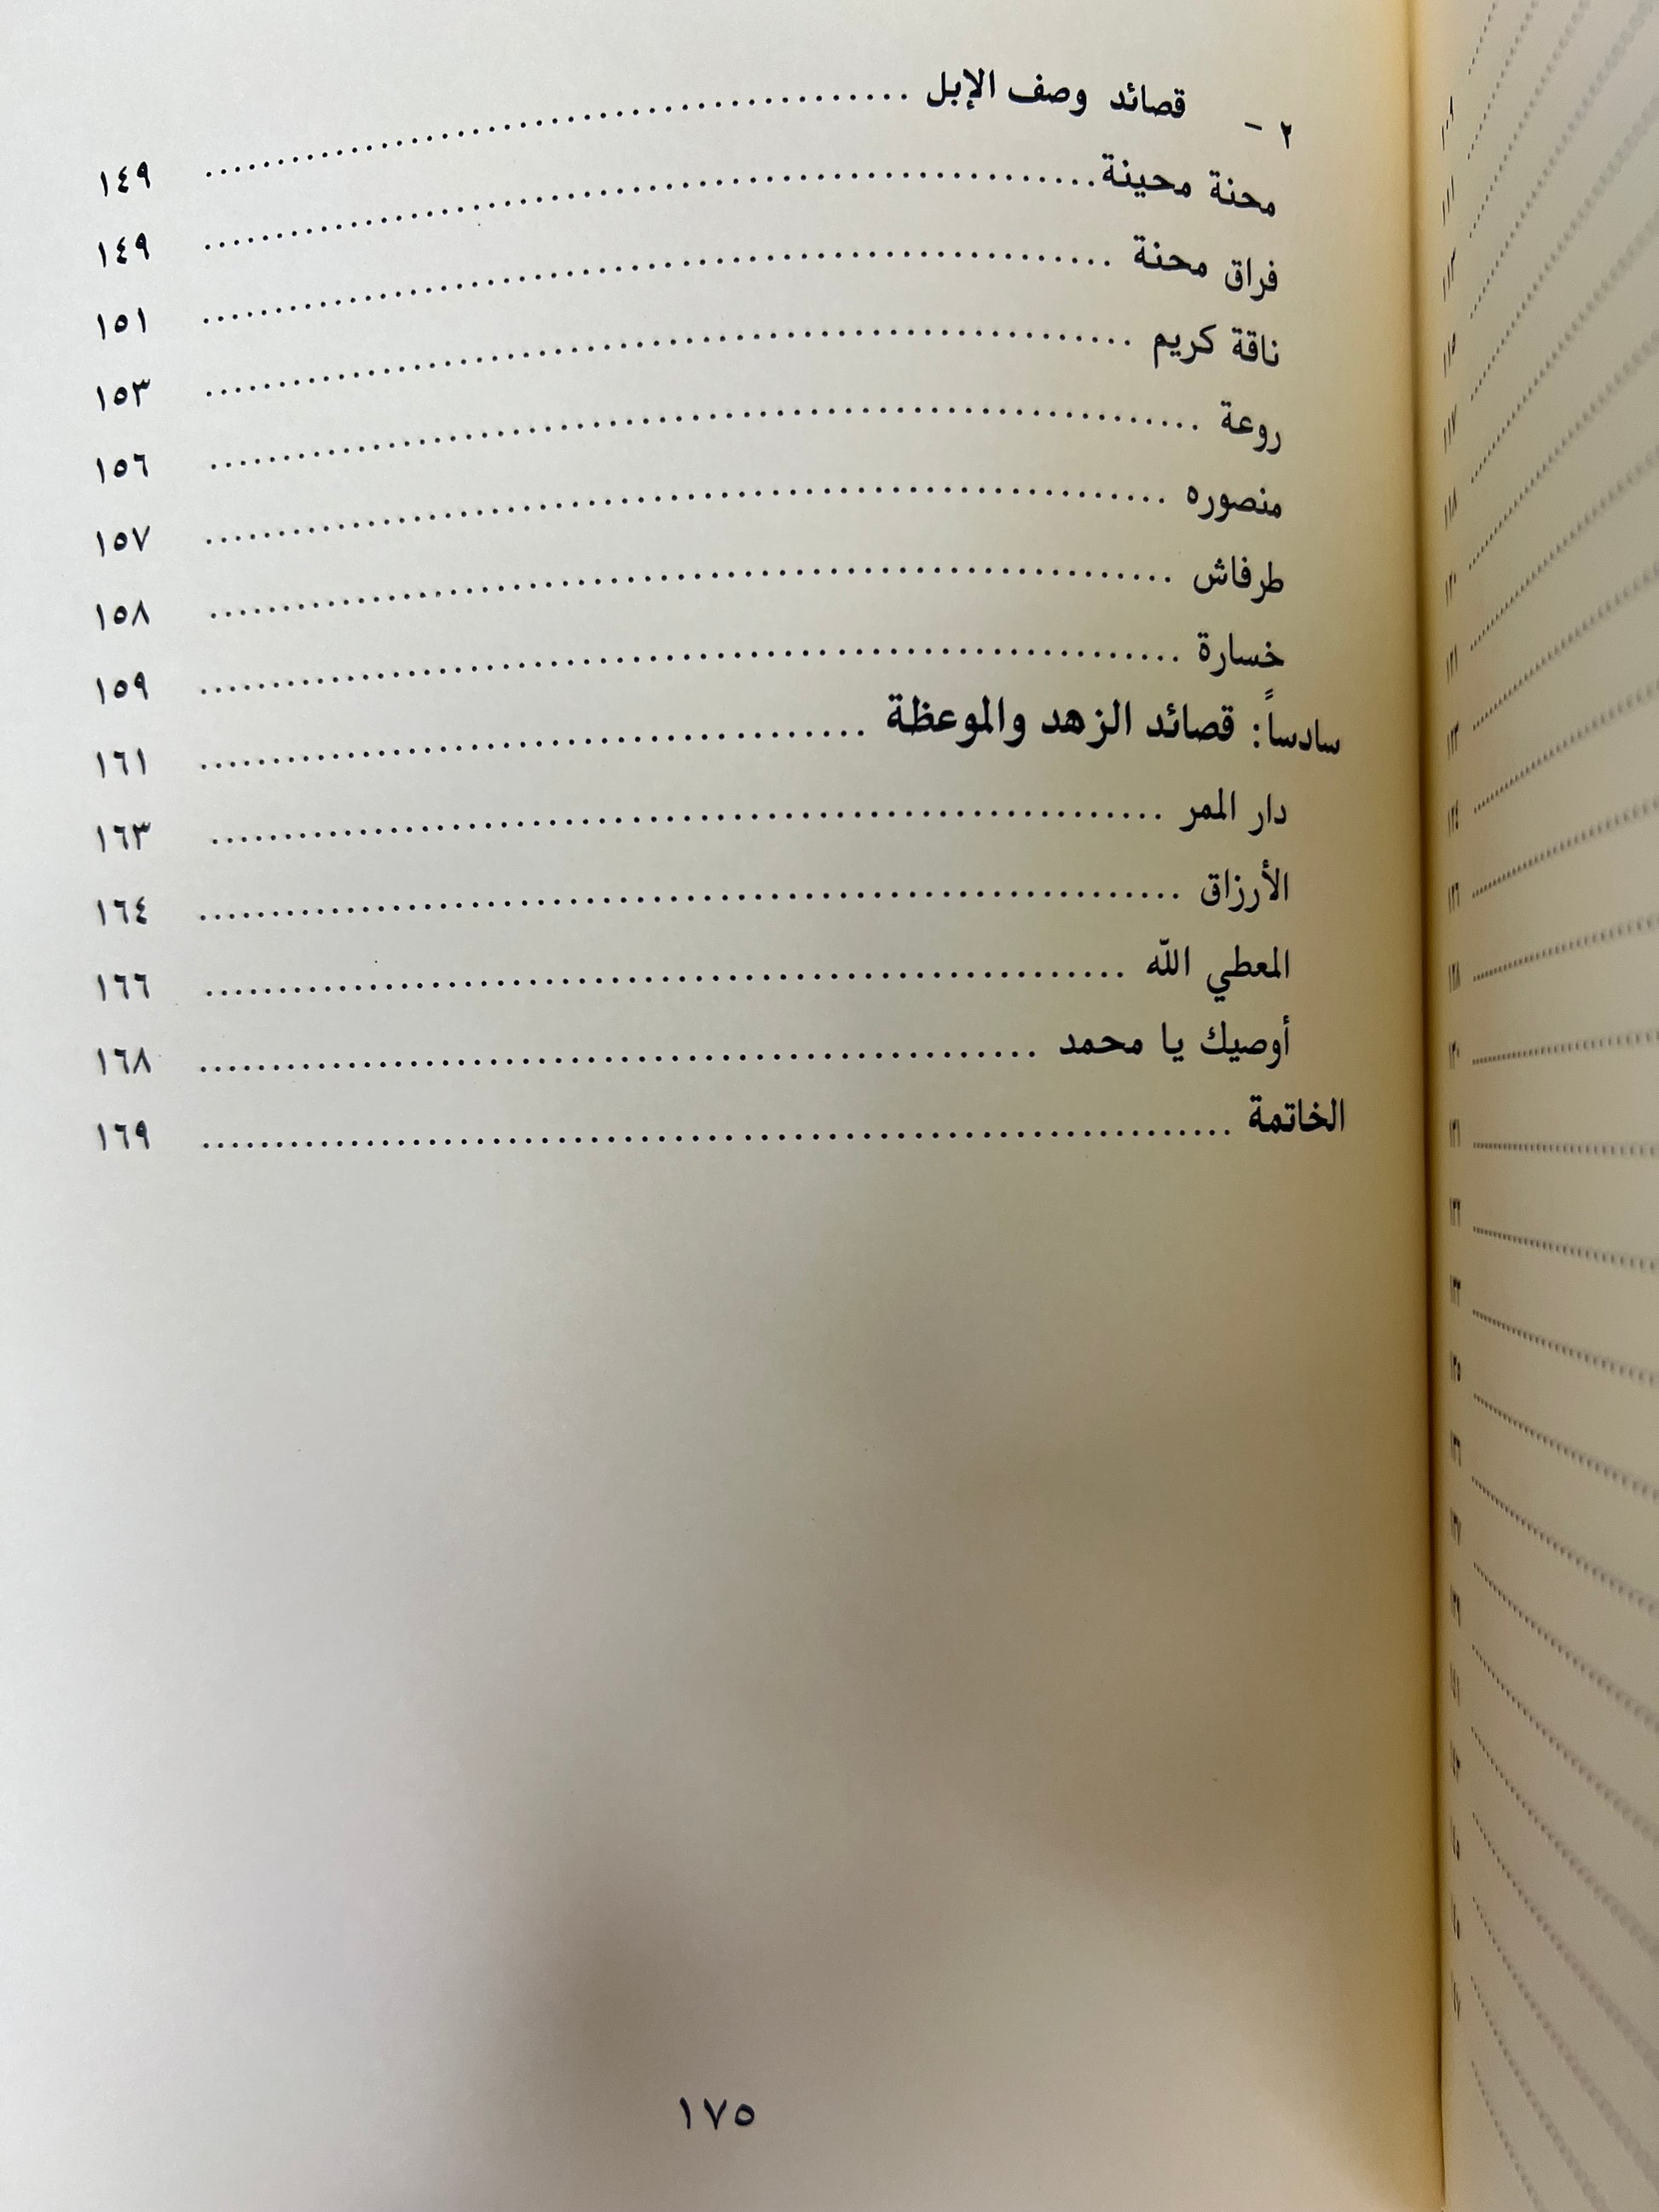 ٢ - قصائد وصف الإبل ........ ١٤٩
محنة محينة ........ ١٤٩
فراق محنة ........ ١٥١
ناقة كريم ........ ١٥٣
روعة ........ ١٥٦
منصوره ........ ١٥٧
طرفاش ........ ١٥٨
خسارة ........ ١٥٩
سادساً: قصائد الزهد والموعظة ........ ١٦١
دار الممر ........ ١٦٣
الأرزاق ........ ١٦٤
المعطي الله ........ ١٦٦
أوصيك يا محمد ........ ١٦٨
الخاتمة ........ ١٦٩
١٧٥